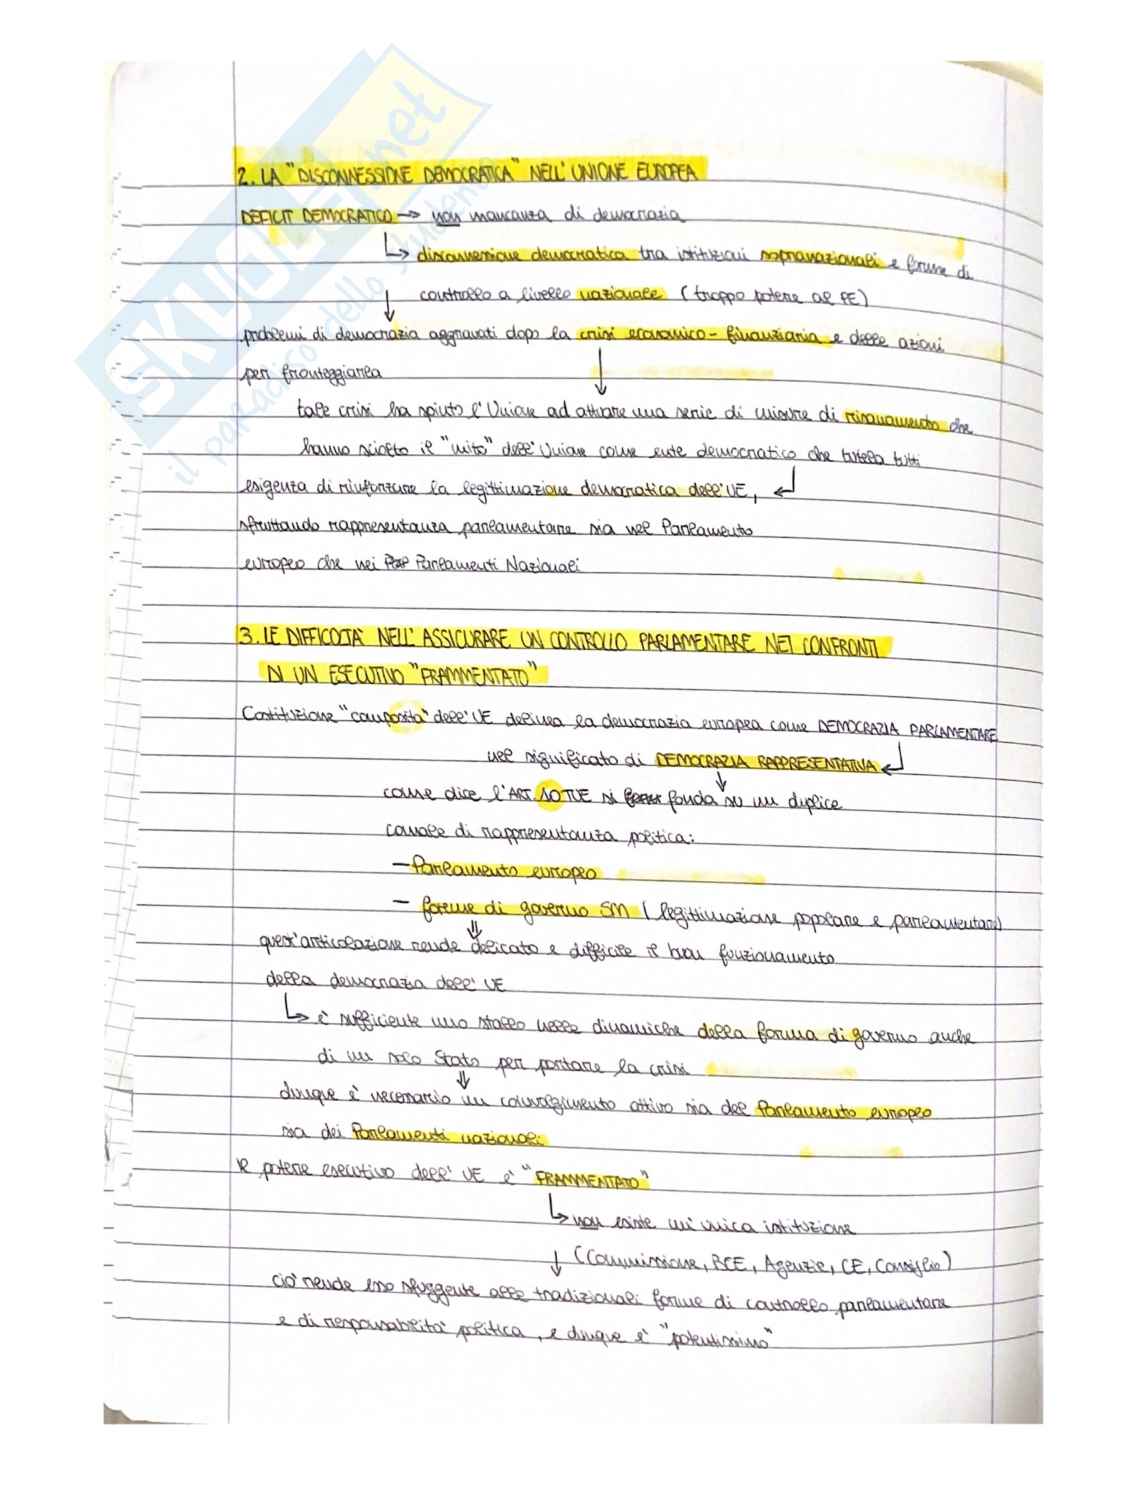 SKUOLA.net
il paradiso dello studente
2. LA "DISCONNESSIONE DEMOCRATICA" NELL'UNIONE EUROPEA
DEFICIT DEMOCRATICO → non mancanza di democrazia
↳ disconnessione democratica tra istituzioni sopranazionali e forme di
controllo a livello nazionale (troppo potere al PE)
problemi di democrazia aggravati dopo la crisi economico-finanziaria e delle azioni
per fronteggiarla
tale crisi ha spinto l'Unione ad attivare una serie di misure di risanamento che
hanno sciolto il "mito" dell'Unione come ente democratico che tutela tutti
esigenza di rinforzare la legittimazione democratica dell'UE,
sfruttando rappresentanza parlamentare sia nel Parlamento
europeo che nei Parlamenti Nazionali
3. LE DIFFICOLTA' NELL'ASSICURARE UN CONTROLLO PARLAMENTARE NEI CONFRONTI
DI UN ESECUTIVO "FRAMMENTATO"
Costituzione "composita" dell'UE delinea la democrazia europea come DEMOCRAZIA PARLAMENTARE
nel significato di DEMOCRAZIA RAPPRESENTATIVA
come dice l'ART. 10 TUE si fonda su un duplice
canale di rappresentanza politica:
- Parlamento europeo
- forme di governo SM (legittimazione popolare e parlamentare)
quest'articolazione rende delicato e difficile il buon funzionamento
della democrazia dell'UE
↳ è sufficiente uno stallo nelle dinamiche della forma di governo anche
di un solo Stato per portare la crisi
dunque è necessario un coinvolgimento attivo sia del Parlamento europeo
sia dei Parlamenti nazionali
Il potere esecutivo dell'UE è "FRAMMENTATO"
↳ non esiste un'unica istituzione
(Commissione, BCE, Agenzie, CE, Consiglio)
ciò rende esso sfuggente alle tradizionali forme di controllo parlamentare
e di responsabilità politica, e dunque è "potentissimo"